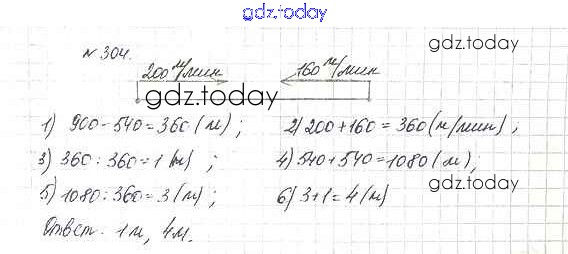 gdz.today
№ 304.
gdz.today
200 м/мин 160 м/мин
gdz.today
1) 900 - 540 = 360 (м) ; 2) 200 + 160 = 360 (м/мин) ;
3) 360 : 360 = 1 (м) ; 4) 540 + 540 = 1080 (м) ;
gdz.today
5) 1080 : 360 = 3 (м) ; 6) 3 + 1 = 4 (м)
Ответ: 1 м, 4 м.